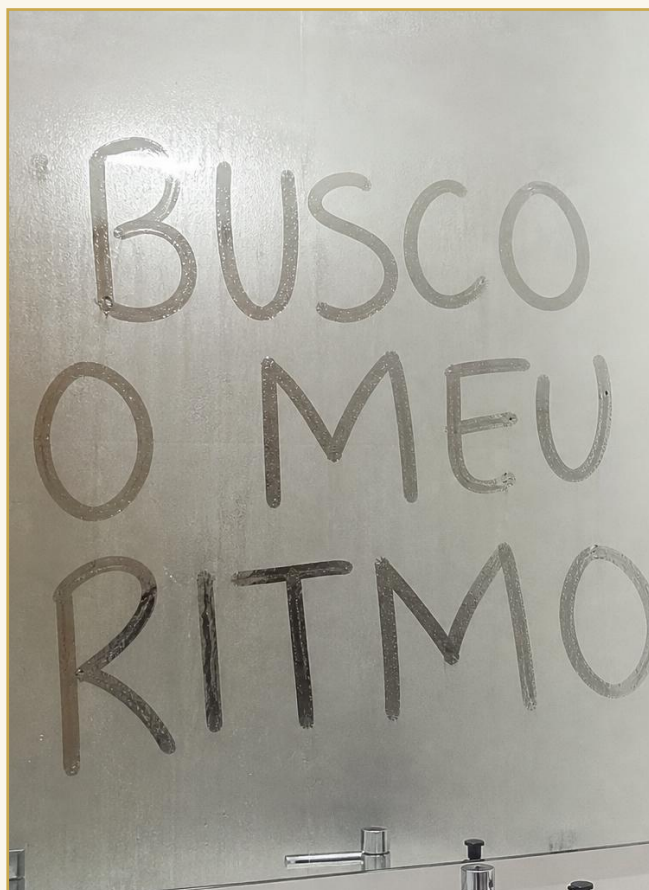 BUSCO
O MEU
RITMO